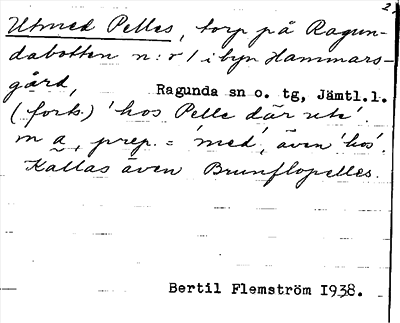 2.
Utmed Pelles, torp på Ragun-
dabotten n:r 1 i byn Hammars-
gård,
Ragunda sn o. tg, Jämtl.l.
(forts.) 'hos Pelle där ute'.
m a, prep. = 'med', även 'hos'.
Kallas även Brunflopelles.
Bertil Flemström I938.